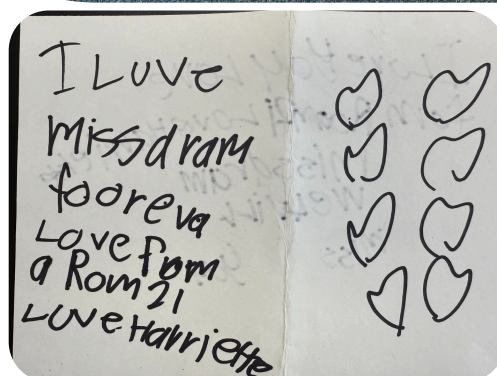 I Luve
Missdram
fooreva
Love from
a Rom 21
Luve Harriette